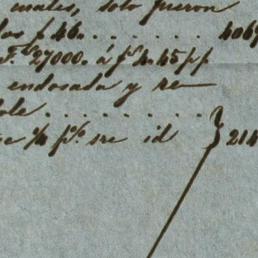 cuales, solo fueron
los $ 46. . . . . . . . 406
F.s 27000. á f.s 4.45 pp
endosada y re-
ble . . . . . . . .
¼ p% sre id } 214